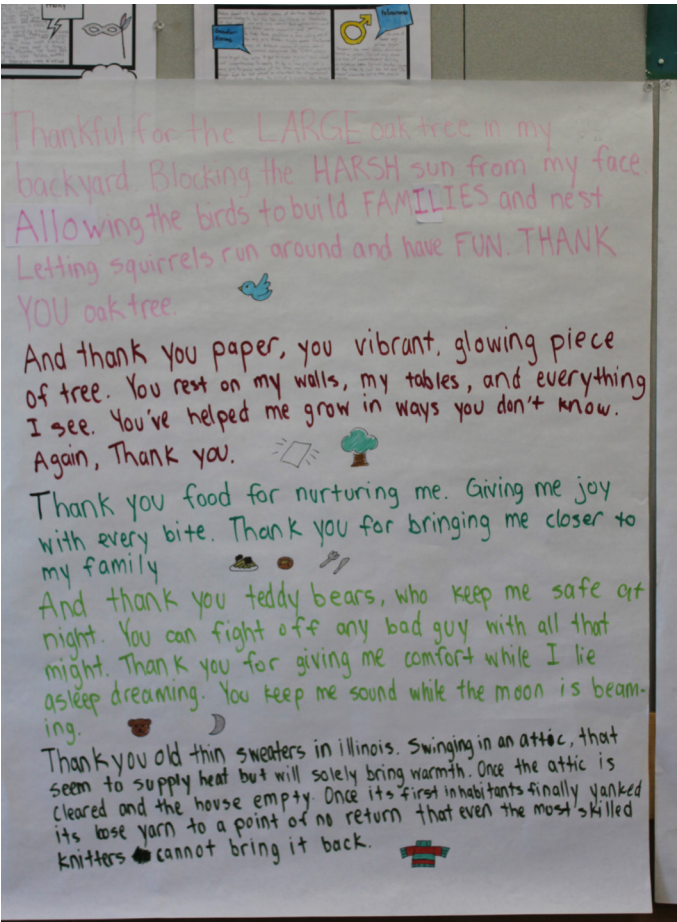 Thankful for the LARGE oak tree in my
backyard. Blocking the HARSH sun from my face.
Allowing the birds to build FAMILIES and nest
Letting squirrels run around and have FUN. THANK
YOU oak tree.
And thank you paper, you vibrant, glowing piece
of tree. You rest on my walls, my tables, and everything
I see. You've helped me grow in ways you don't know.
Again, Thank you.
Thank you food for nurturing me. Giving me joy
with every bite. Thank you for bringing me closer to
my family
And thank you teddy bears, who keep me safe at
night. You can fight off any bad guy with all that
might. Thank you for giving me comfort while I lie
asleep dreaming. You keep me sound while the moon is beam-
ing.
Thank you old thin sweaters in illinois. Swinging in an attic, that
seem to supply heat but will solely bring warmth. Once the attic is
cleared and the house empty. Once its first inhabitants finally yanked
its loose yarn to a point of no return that even the most skilled
knitters cannot bring it back.